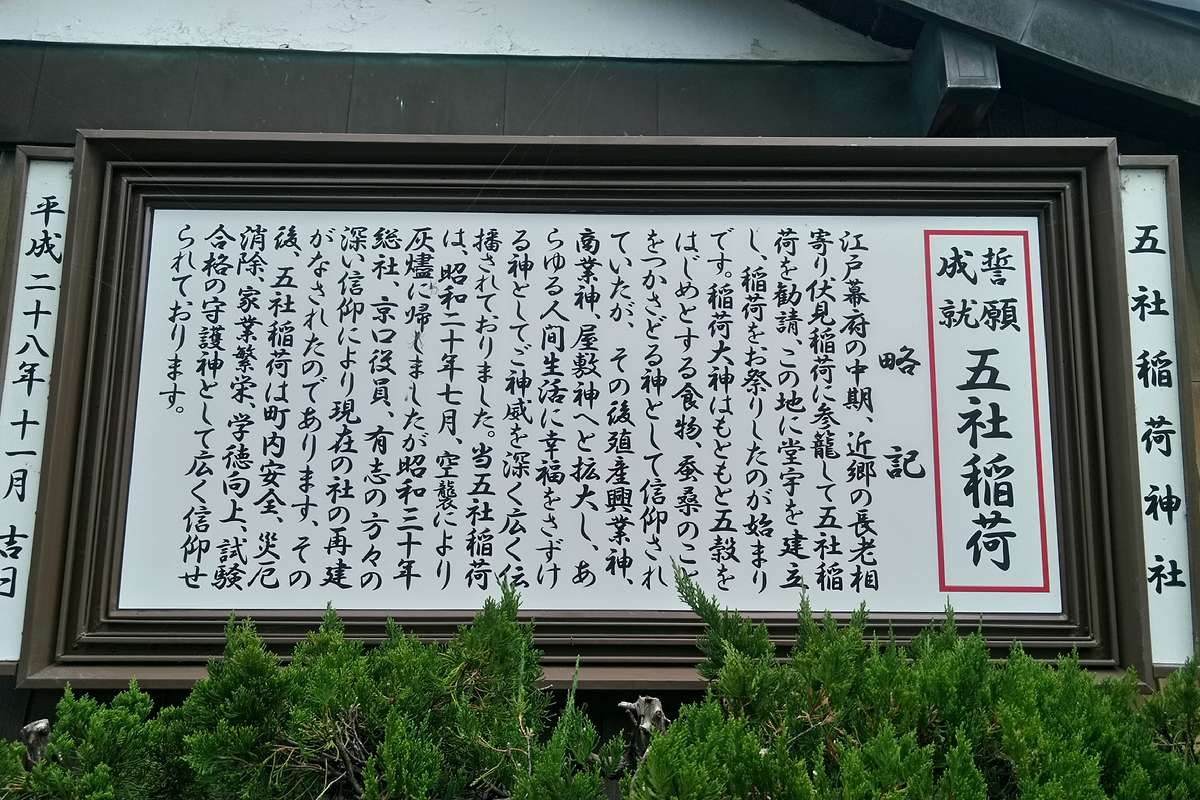 五社稲荷神社
誓願
成就
五社稲荷
略記
江戸幕府の中期、近郷の長老相
寄り伏見稲荷に参籠して五社稲
荷を勧請、この地に堂宇を建立
し、稲荷をお祭りしたのが始まり
です。稲荷大神はもともと五穀を
はじめとする食物、蚕桑のこと
をつかさどる神として信仰され
ていたが、その後殖産興業神、
商業神、屋敷神へと拡大し、あ
らゆる人間生活に幸福をさずけ
る神としてご神威を深く広く伝
播されておりました。当五社稲荷
は、昭和二十年七月、空襲により
灰燼に帰しましたが昭和三十年
総社、京口役員、有志の方々の
深い信仰により現在の社の再建
がなされたのであります、その
後、五社稲荷は町内安全、災厄
消除、家業繁栄、学徳向上、試験
合格の守護神として広く信仰せ
られております。
平成二十八年十一月吉日